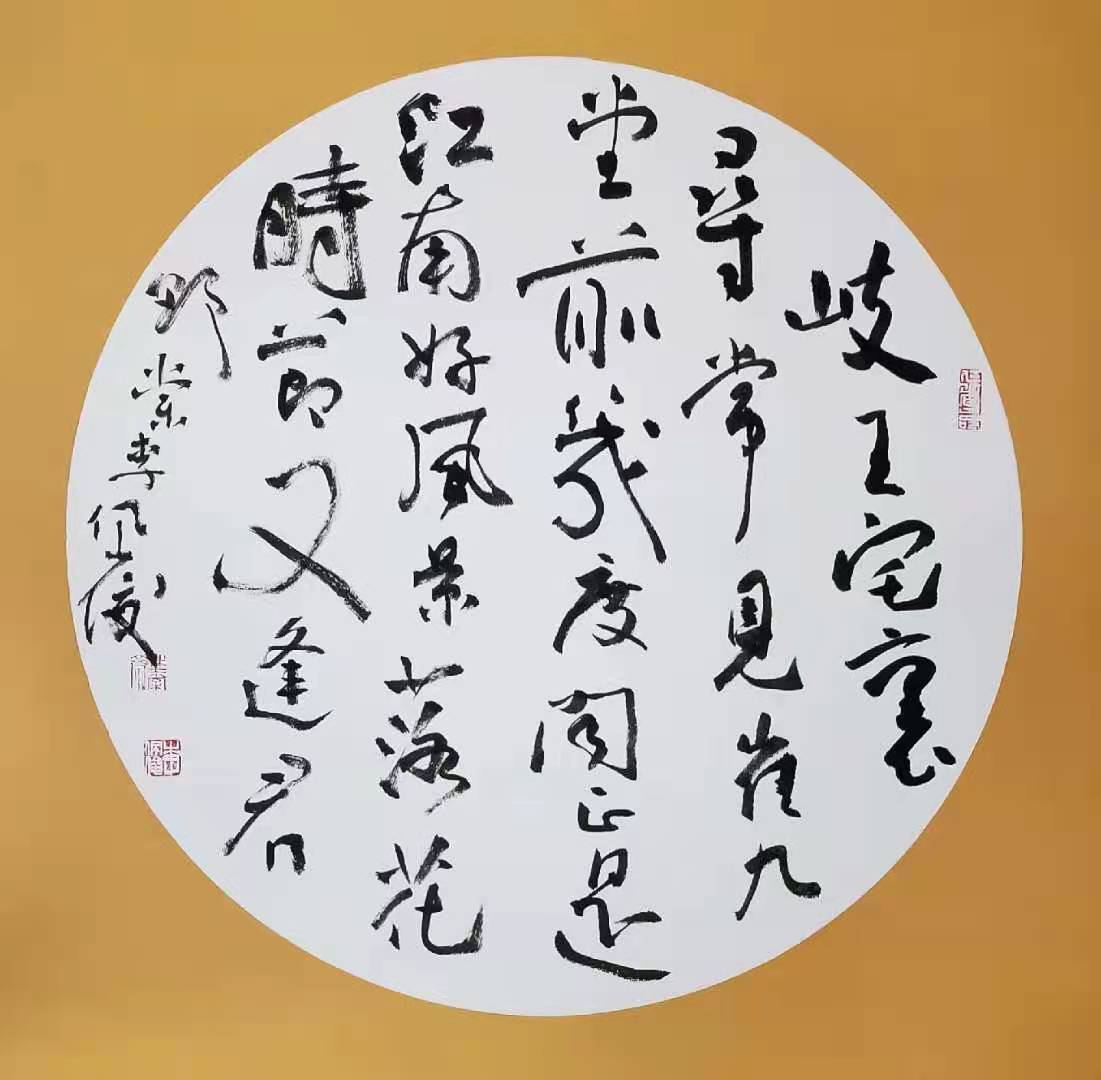 岐王宅裏
尋常見崔九
堂前幾度聞正是
江南好風景落花
時節又逢君
李佩